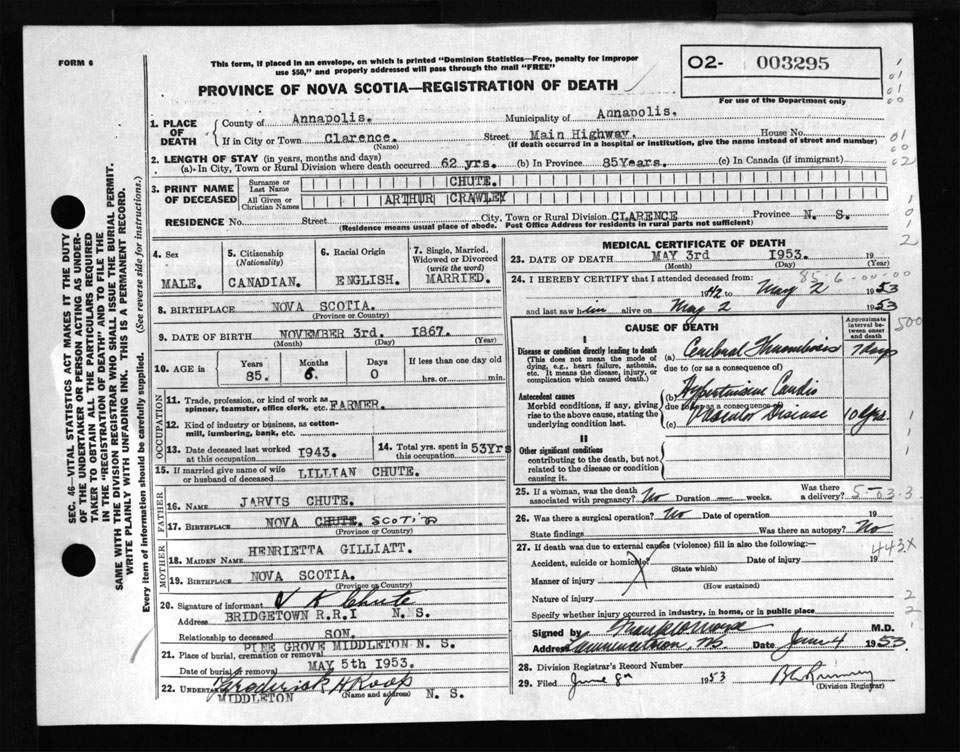 FORM 6
This form, if placed in an envelope, on which is printed "Dominion Statistics—Free, penalty for improper
use $50," and properly addressed will pass through the mail "FREE"
02- 003295
For use of the Department only
PROVINCE OF NOVA SCOTIA—REGISTRATION OF DEATH
1. PLACE OF DEATH
County of Annapolis. Municipality of Annapolis.
If in City or Town Clarence. Street Main Highway. House No.
(Name) (If death occurred in a hospital or institution, give the name instead of street and number)
2. LENGTH OF STAY (in years, months and days)
(a)- In City, Town or Rural Division where death occurred 62 yrs. (b) In Province 85Years. (c) In Canada (if immigrant)
3. PRINT NAME OF DECEASED
Surname or Last Name CHUTE.
All Given or Christian Names ARTHUR CRAWLEY
RESIDENCE No. Street City, Town or Rural Division CLARENCE Province N. S.
(Residence means usual place of abode. Post Office Address for residents in rural parts not sufficient)
4. Sex MALE.
5. Citizenship (Nationality) CANADIAN.
6. Racial Origin ENGLISH.
7. Single, Married, Widowed or Divorced (write the word) MARRIED.
8. BIRTHPLACE NOVA SCOTIA.
(Province or Country)
9. DATE OF BIRTH NOVEMBER 3rd. 1867.
(Month) (Day) (Year)
10. AGE in Years 85. Months 6. Days 0 If less than one day old hrs. or min.
OCCUPATION
11. Trade, profession, or kind of work as
spinner, teamster, office clerk, etc. FARMER.
12. Kind of industry or business, as cotton-
mill, lumbering, bank, etc.
13. Date deceased last worked
at this occupation 1943.
14. Total yrs. spent in
this occupation 53Yrs
15. If married give name of wife
or husband of deceased LILLIAN CHUTE.
FATHER
16. NAME JARVIS CHUTE.
17. BIRTHPLACE NOVA CHUTE. SCOTIA
(Province or Country)
MOTHER
18. MAIDEN NAME HENRIETTA GILLIATT.
19. BIRTHPLACE NOVA SCOTIA.
(Province or Country)
20. Signature of informant V A Chute
Address BRIDGETOWN R.R.I N.S.
Relationship to deceased SON.
21. Place of burial, cremation or removal PINE GROVE MIDDLETON N. S.
Date of burial or removal MAY 5th 1953.
22. Undertaker Broderick & Roop
(Name and address)
MIDDLETON N. S.
MEDICAL CERTIFICATE OF DEATH
23. DATE OF DEATH MAY 3rd 1953. 19
(Month) (Day) (Year)
24. I HEREBY CERTIFY that I attended deceased from
to May 2 1953
and last saw him alive on May 2 1953
CAUSE OF DEATH
Approximate interval between onset and death
I
Disease or condition directly leading to death
(This does not mean the mode of
dying, e.g., heart failure, asthenia,
etc. It means the disease, injury, or
complication which caused death.)
(a) Cerebral Thrombosis 7 days
due to (or as a consequence of)
Antecedent causes
Morbid conditions, if any, giving
rise to the above cause, stating the
underlying condition last.
(b) Hypertensive Cardio
due to (or as a consequence of)
(c) Vascular Disease 10 yrs.
II
Other significant conditions
contributing to the death, but not
related to the disease or condition
causing it.
25. If a woman, was the death
associated with pregnancy? No Duration weeks. Was there a delivery?
26. Was there a surgical operation? No Date of operation 19
State findings Was there an autopsy? No
27. If death was due to external causes (violence) fill in also the following:—
Accident, suicide or homicide? Date of injury 19
(State which)
Manner of injury
(How sustained)
Nature of injury
Specify whether injury occurred in industry, in home, or in public place
Signed by M.D.
Address Lawrencetown, NS Date June 4 1953
28. Division Registrar's Record Number
29. Filed June 8 1953
(Division Registrar)
SEC. 46—VITAL STATISTICS ACT MAKES IT THE DUTY
OF THE UNDERTAKER OR PERSON ACTING AS UNDER-
TAKER TO OBTAIN ALL THE PARTICULARS REQUIRED
IN THE "REGISTRATION OF DEATH" AND TO FILE THE
SAME WITH THE DIVISION REGISTRAR WHO SHALL ISSUE THE BURIAL PERMIT.
WRITE PLAINLY WITH UNFADING INK. THIS IS A PERMANENT RECORD.
Every item of information should be carefully supplied. (See reverse side for instructions.)
85-6-00-00
500
5-03-3
443X